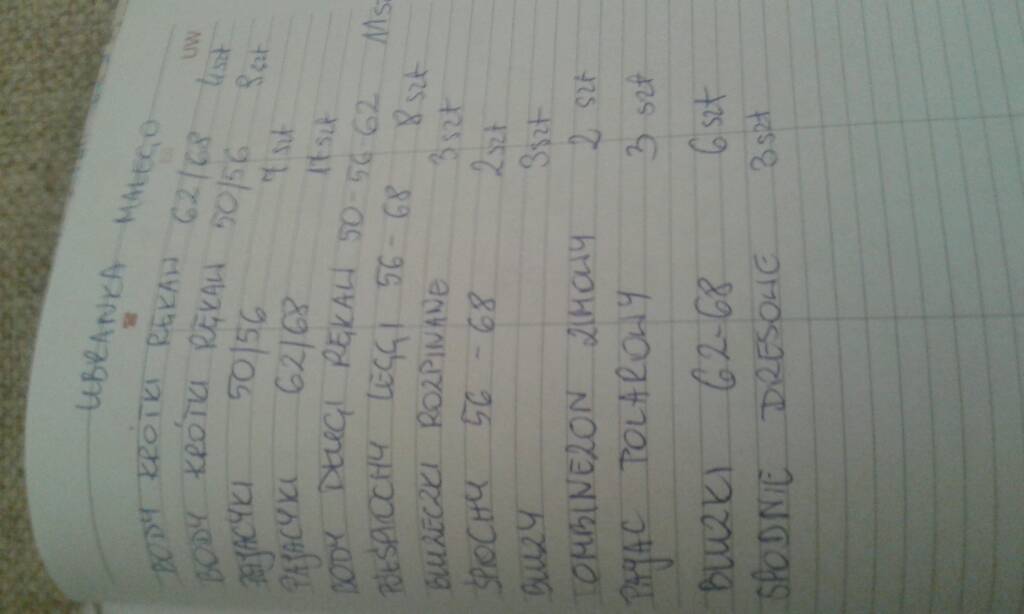 UBRANKA MAŁEGO
BODY KRÓTKI RĘKAW 62/68 4szt
BODY KRÓTKI RĘKAW 50/56 9szt
PAJACYKI 50/56 7szt
PAJACYKI 62/68 11szt
BODY DŁUGI RĘKAW 50-56-62 11sz
PÓŁŚPIOCHY LEGGI 56-68 8szt
BLUZECZKI ROZPINANE 3szt
ŚPIOCHY 56-68 2szt
BLUZY 3szt
KOMBINEZON ZIMOWY 2 szt
PAJAC POLAROWY 3 szt
BLUZKI 62-68 6szt
SPODNIE DRESOWE 3szt